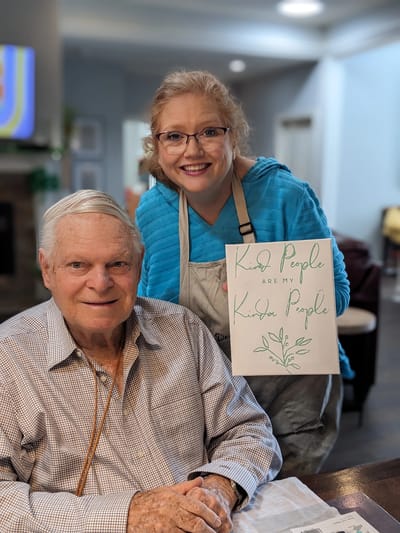 Kind People
ARE MY
Kinda People